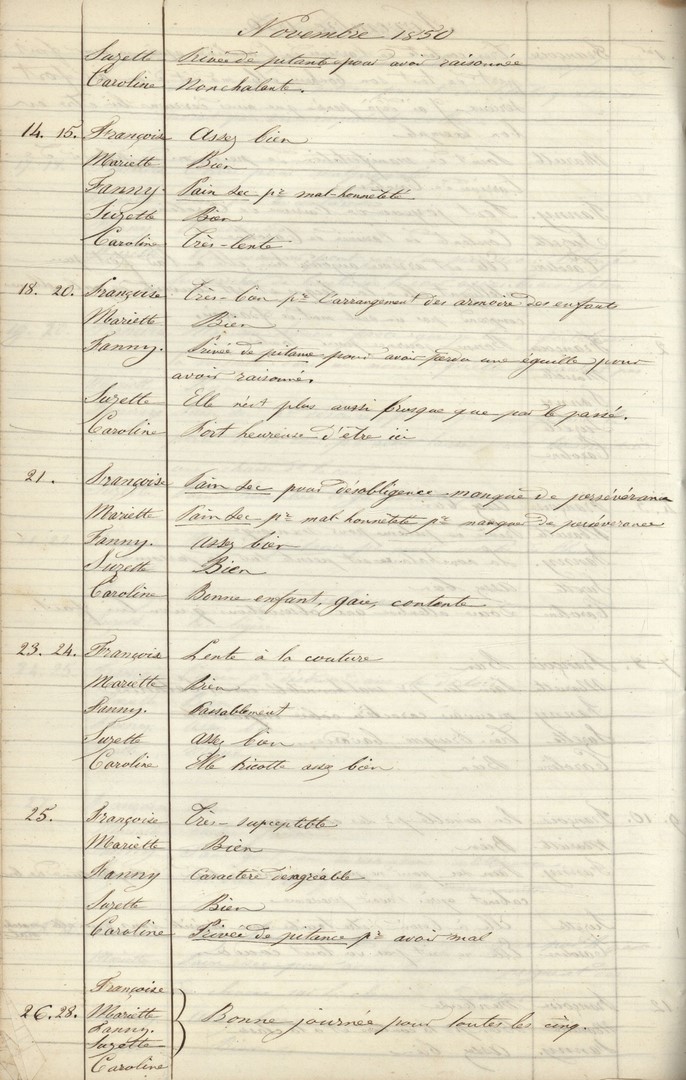 Novembre 1850
Suzette Privée de pitance pour avoir raisonnée
Caroline Nonchalante.
14. 15. Françoise Assez bien
Mariette Bien
Fanny. Pain sec pr mal-honnêteté
Suzette Bien
Caroline Très-lente
18. 20. Françoise Très-bon pr l'arrangement des armoire des enfants
Mariette Bien
Fanny. Privée de pitance pour avoir perdu une éguille pour
avoir raisonnée.
Suzette Elle n'est plus aussi brusque que par le passé.
Caroline Fort heureuse d'être ici
21. Françoise Pain sec pour désobligence-manque de persévérance
Mariette Pain sec pr mal-honnêteté pr manque de persévérance
Fanny. Assez bien
Suzette Bien
Caroline Bonne enfant, gaie, contente
23. 24. Françoise Lente à la couture
Mariette Bien
Fanny. Passablement
Suzette Assez bien
Caroline Elle tricotte assez bien
25. Françoise Très-suceptible
Mariette Bien
Fanny Caractère désagréable
Suzette Bien
Caroline Privée de pitance pr avoir mal
Françoise
26. 28. Mariette Bonne journée pour toutes les cinq.
Fanny.
Suzette
Caroline